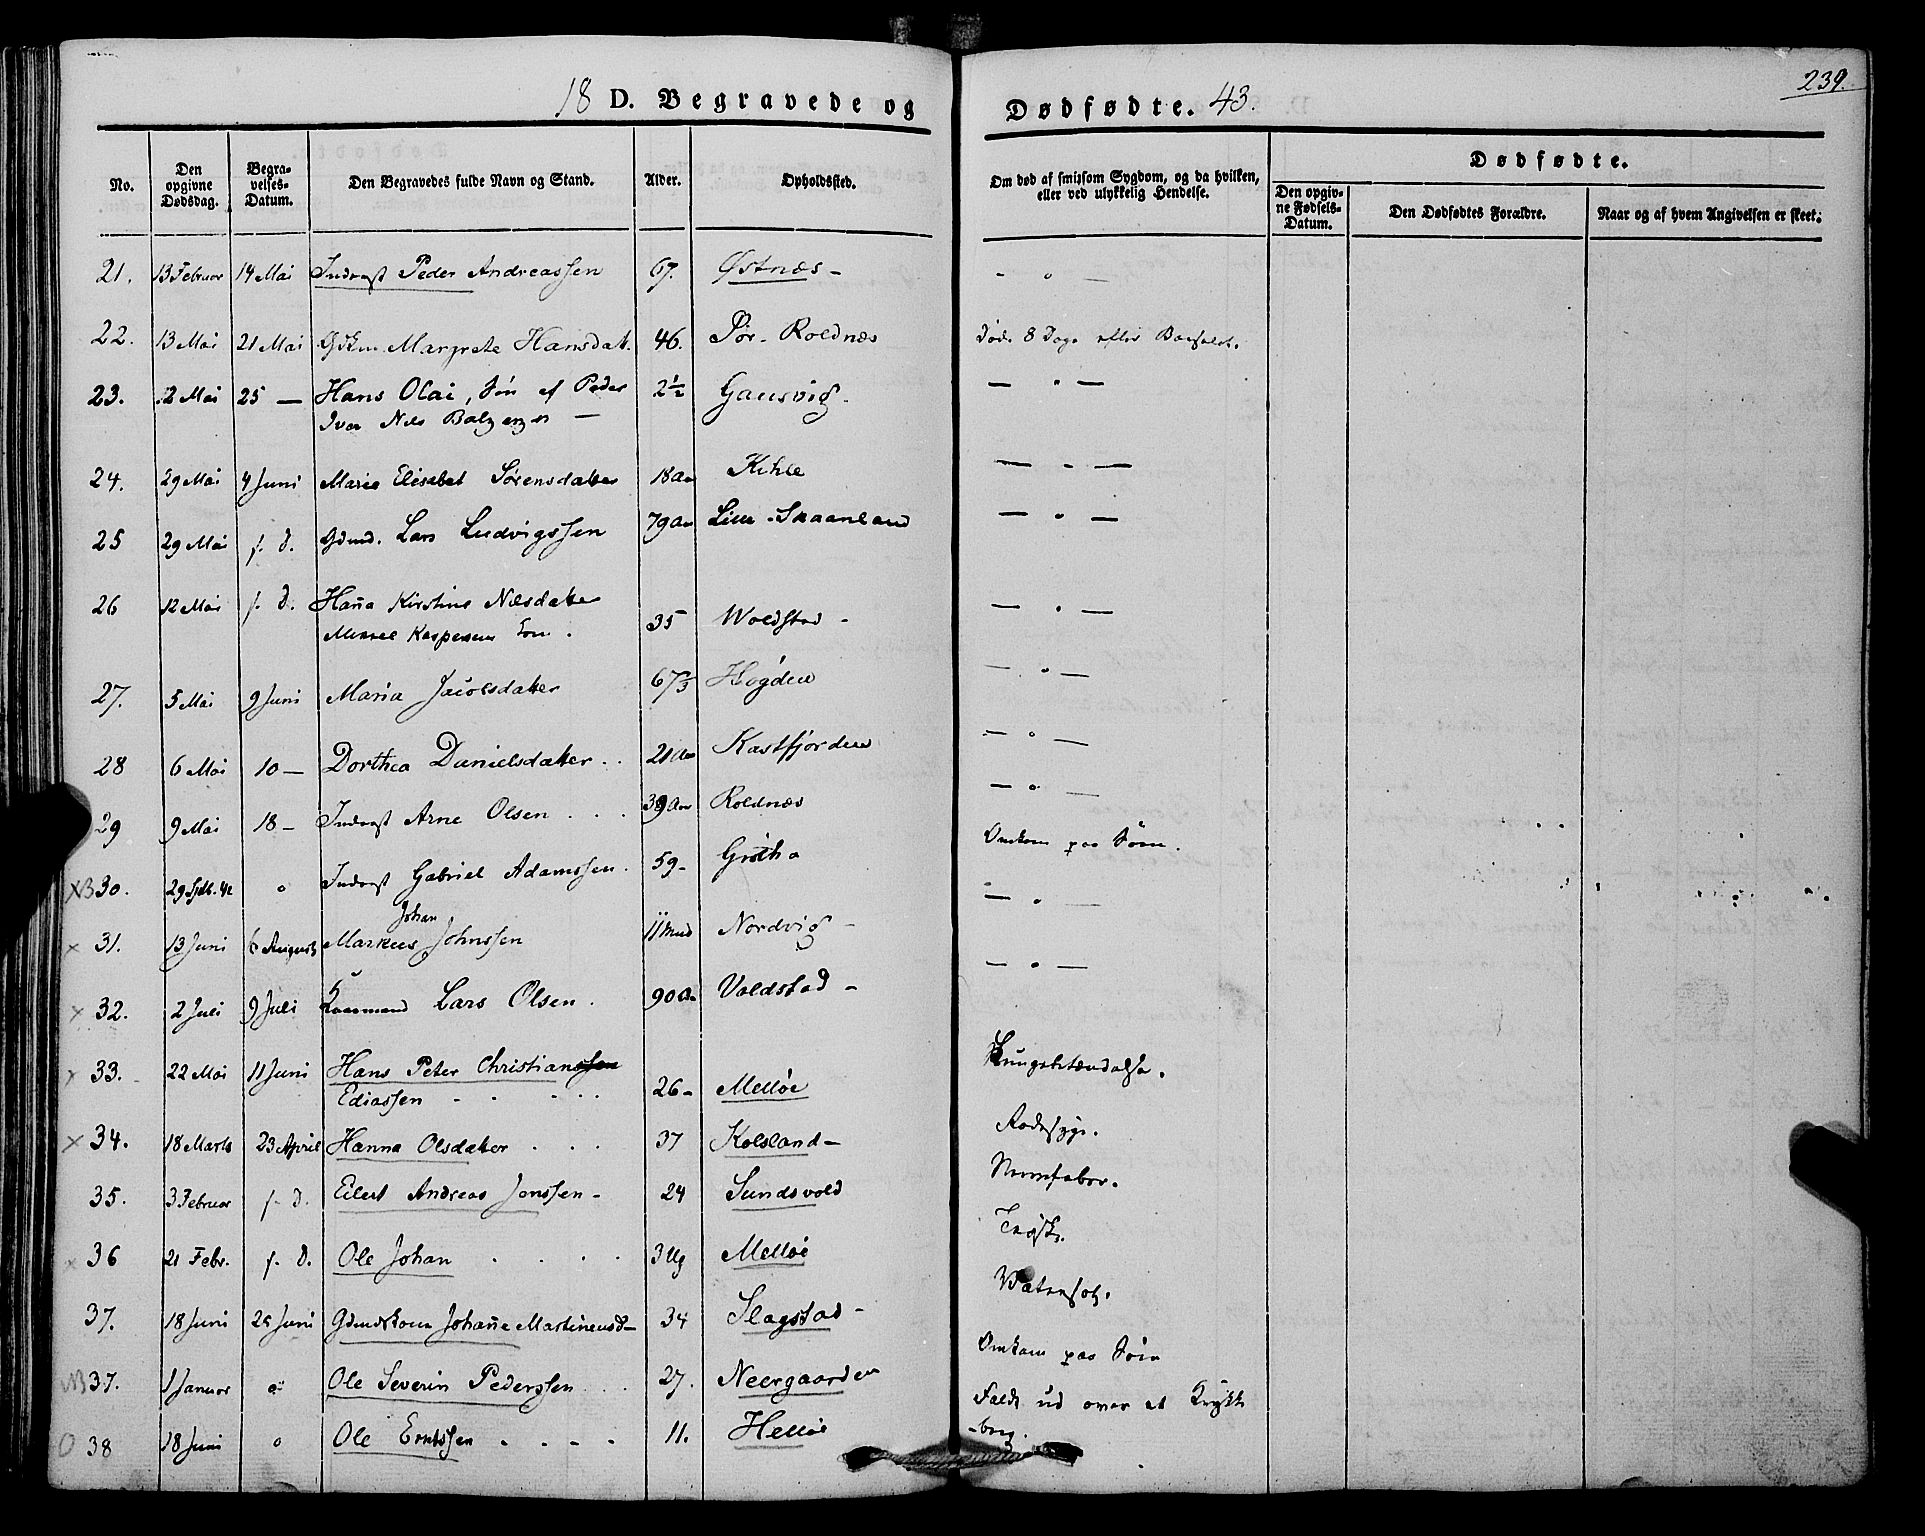 239.
18 D. Begravede og Dødfødte. 43.
No. Den opgivne Dødsdag. Begravelses-Datum. Den Begravedes fulde Navn og Stand. Alder. Opholdssted. Om død af smitsom Sygdom, og da hvilken, eller ved ulykkelig Hendelse.
Dødfødte.
Den opgivne Fødsels-Datum. Den Dødfødtes Forældre. Naar og af hvem Angivelsen er skeet.
21. 13 Februar 14 Mai Inderst Peder Andreassen 67. Østnæs - - " -
22. 13 Mai 21 Mai Margrete Hansdat. 46. Sør-Roldnæs Døde 8 Dage efter Barselst.
23. 12 Mai 25 — Hans Olai, Søn af Peder 2½ Gausvig. — " —
Iver Nils —
24. 29 Mai 4 Juni Marie Elisabet Sørensdatter 18 Aar Kihle — " —
25 29 Mai s. d. Gdmd. Lars Ludvigssen 79 Aar Lille-Skaanland — " —
26 12 Mai s. d. Hanna Kirstine Nilsdatter
Mikkel Kaspersens Kone. 35 Woldstad - — " —
27. 5 Mai 9 Juni Maria Jacobsdatter 67 Høgden — " —
28 6 Mai 10 — Dorthea Danielsdatter . . 21 Aar Kastfjorden — " —
29 9 Mai 18 — Inderst Arne Olsen . . . 39 Aar Roldnæs — " —
NB 30. 29 42 " Inderst Gabriel Adamssen. 59 - Grøtha Omkom paa Søen.
Johan
x 31. 13 Juni 6 August Markus Johnssen 11 Mnd Nordvig - — " —
x 32. 2 Juli 9 Juli Kaarmand Lars Olsen . 90 Aar Voldstad - — " —
x 33. 22 Mai 11 Juni Hans Peter Christianssen
Ediassen - - - - 26 - Melløe Lungebetændelse.
x 34. 18 Marts 23 April Hanna Olsdatter . . . 37 Kolsland - Rodesyge.
35. 3 Februar s. d. Eilert Andreas Jenssen - 24 Sundsvold Nervefeber.
x 36 21 Febr. s. d. Ole Johan . . . . 3 Ug Melløe Trøske.
37. 18 Juni 25 Juni Gdmdskone Johanne Martinensd- 34 Slagstad - Vatersot.
NB 37. 1 Januar " Ole Severin Pederssen . . 27. Neergaarden Omkom paa Søen
O 38 18 Juni " Ole Erntssen . - - - 11. Helløe Faldt ud over et